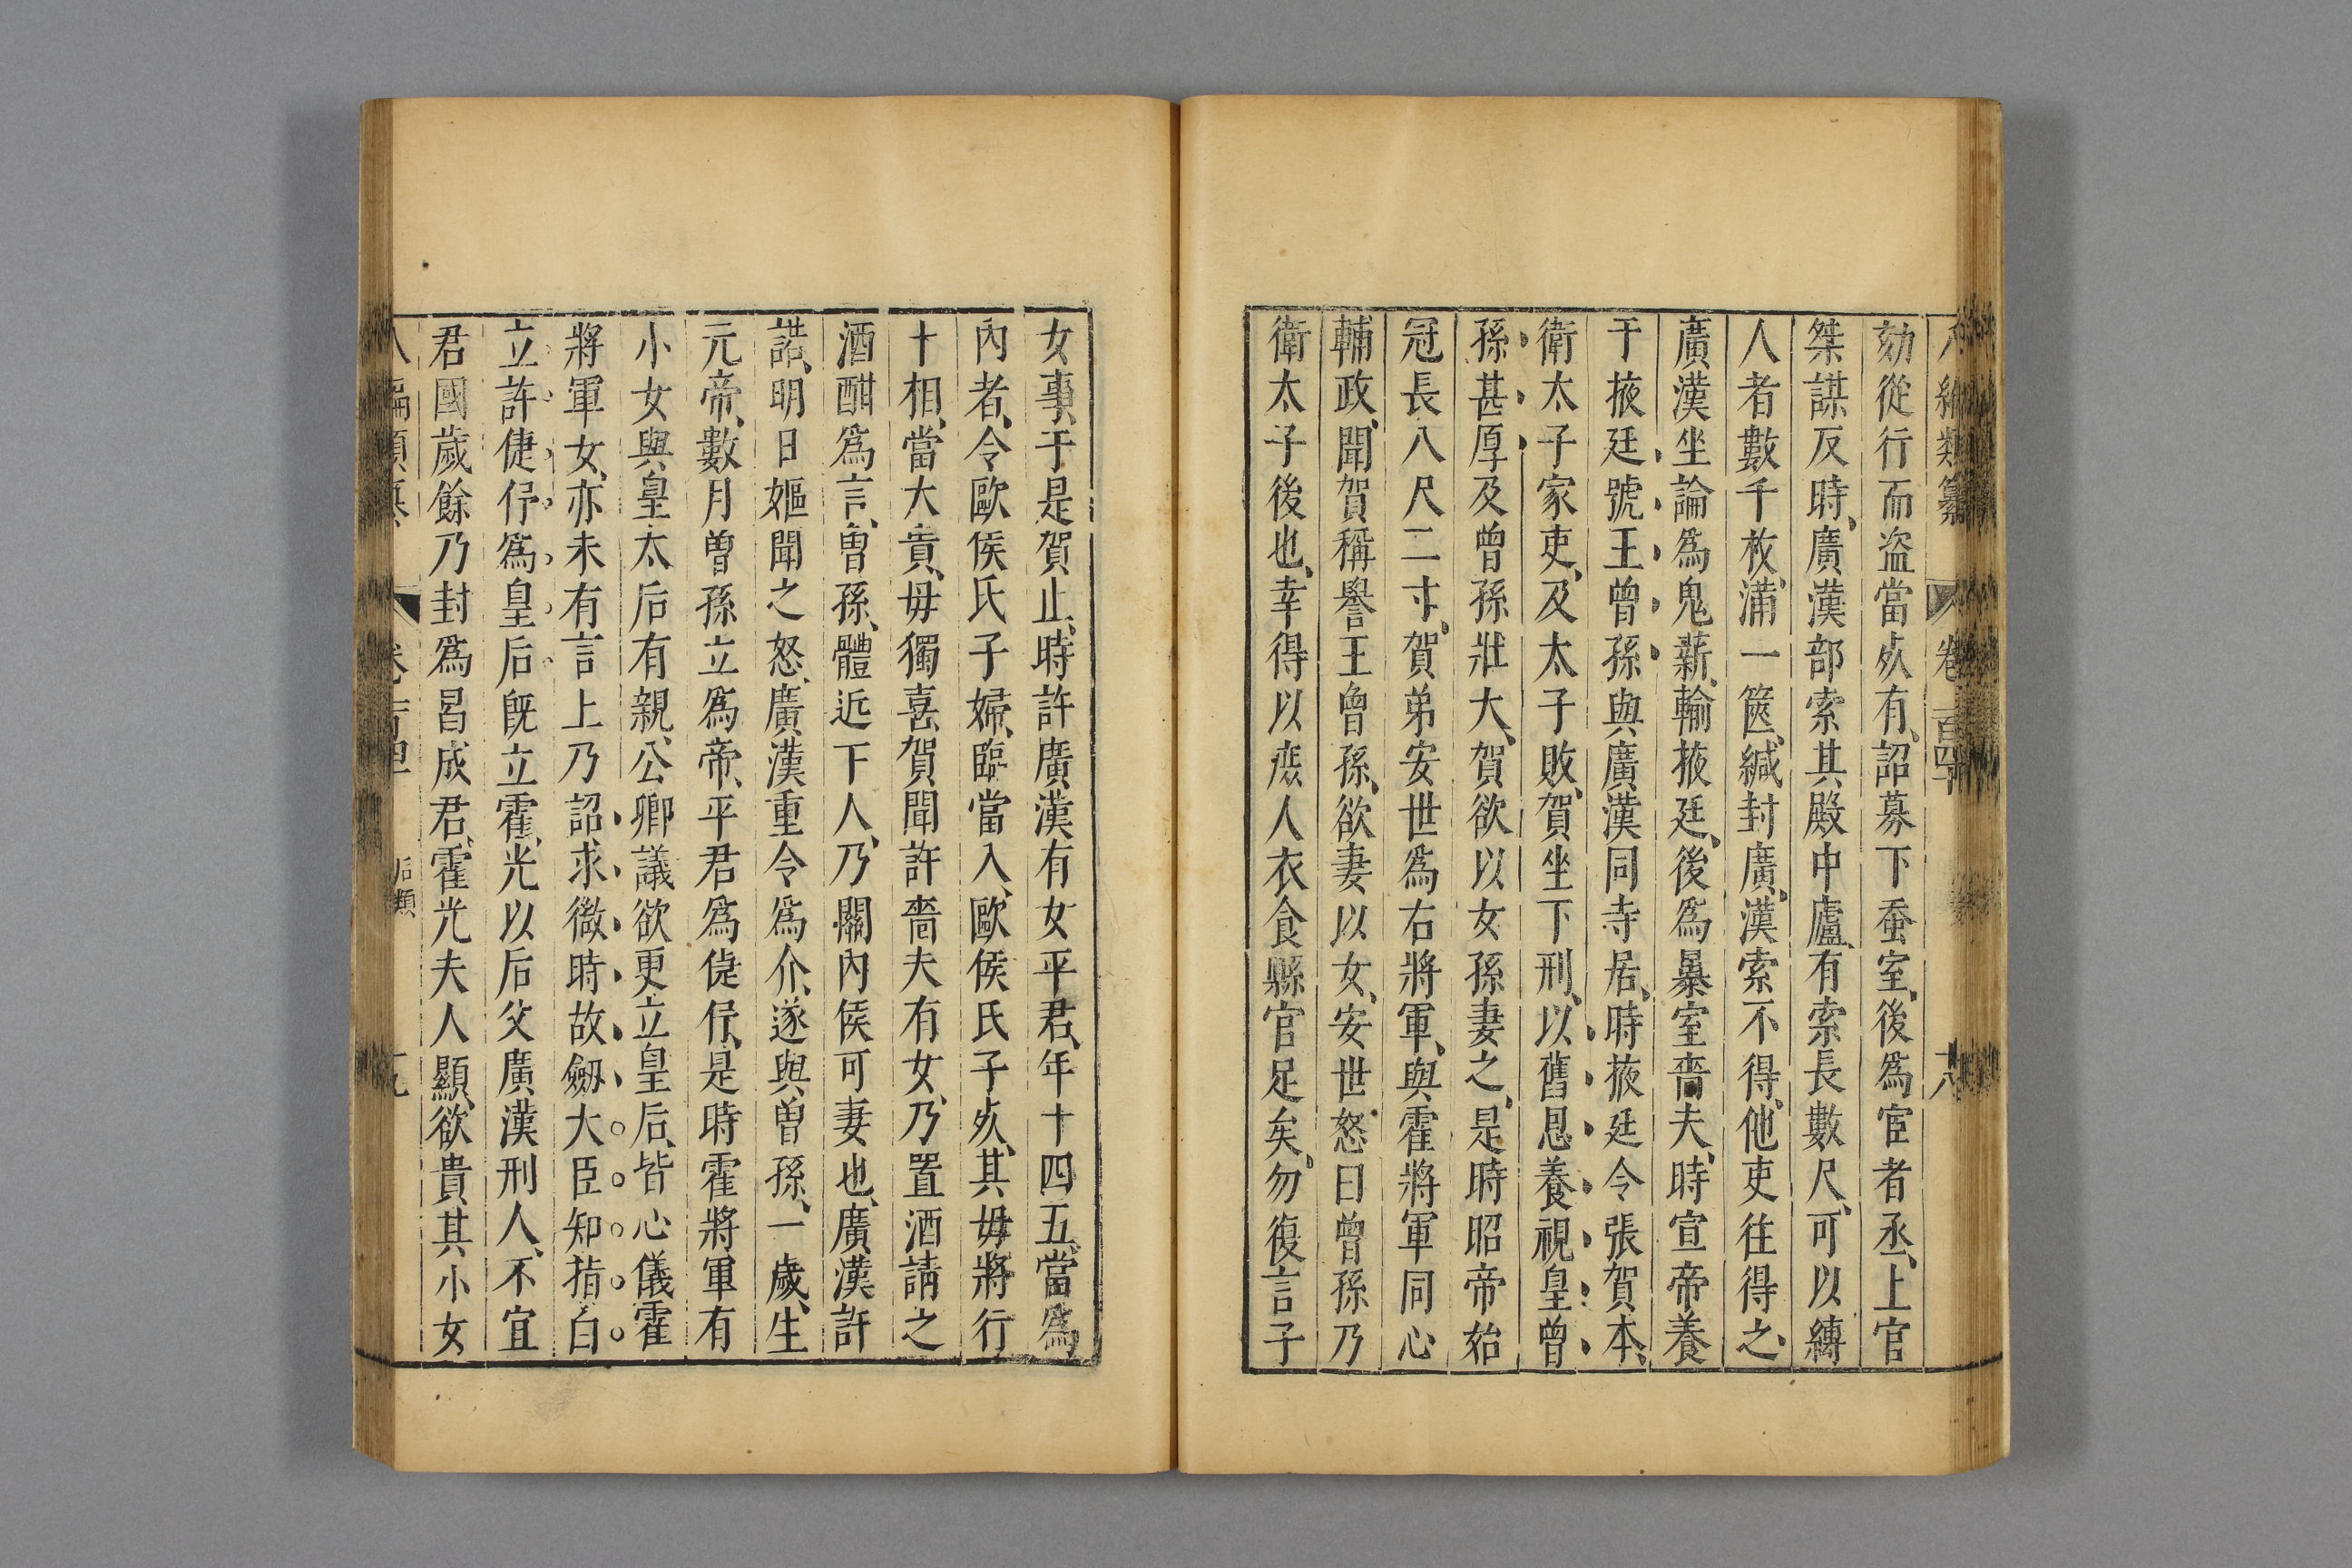 編類纂 卷一百四十 十八
劾從行而盜當死有詔募下蚕室後爲宦者丞上官
桀謀反時廣漢部索其殿中廬有索長數尺可以縛
人者數千枚滿一篋緘封廣漢索不得他吏往得之
廣漢坐論爲鬼薪輸掖廷後爲暴室嗇夫時宣帝養
于掖廷號王曾孫與廣漢同寺居時掖廷令張賀本
衛太子家吏及太子敗賀坐下刑以舊恩養視皇曾
孫甚厚及曾孫壯大賀欲以女孫妻之是時昭帝始
冠長八尺二寸賀弟安世爲右將軍與霍將軍同心
輔政聞賀稱譽王曾孫欲妻以女安世怒曰曾孫乃
衛太子後也幸得以庶人衣食縣官足矣勿復言子
女事于是賀止時許廣漢有女平君年十四五當爲
內者令歐侯氏子婦臨當入歐侯氏子死其母將行
十相當大貴毋獨喜賀聞許嗇夫有女乃置酒請之
酒酣爲言曾孫體近下人乃關內侯可妻也廣漢許
諾明日嫗聞之怒廣漢重令爲介遂與曾孫一歲生
元帝數月曾孫立爲帝平君爲倢伃是時霍將軍有
小女與皇太后有親公卿議欲更立皇后皆心儀霍
將軍女亦未有言上乃詔求微時故劒大臣知指白
立許倢伃爲皇后旣立霍光以后父廣漢刑人不宜
君國歲餘乃封爲昌成君霍光夫人顯欲貴其小女
后類